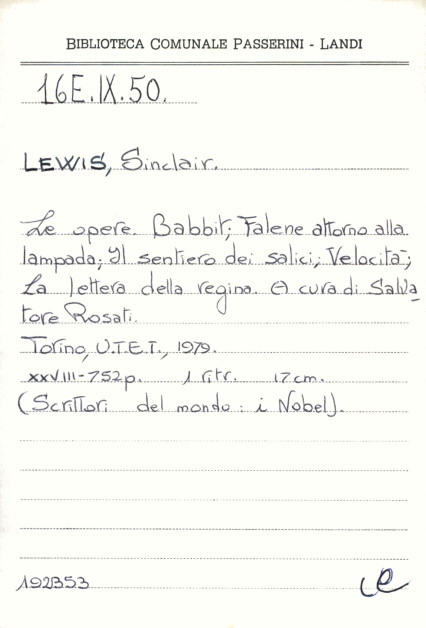 BIBLIOTECA COMUNALE PASSERINI - LANDI
16E.IX.50.
LEWIS, Sinclair.
Le opere. Babbit; Falene attorno alla
lampada; Il sentiero dei salici; Velocità;
La lettera della regina. A cura di Salva
tore Rosati.
Torino, U.T.E.T., 1979.
XXVIII-752p. 1 ritr. 17cm.
(Scrittori del mondo: i Nobel).
192353